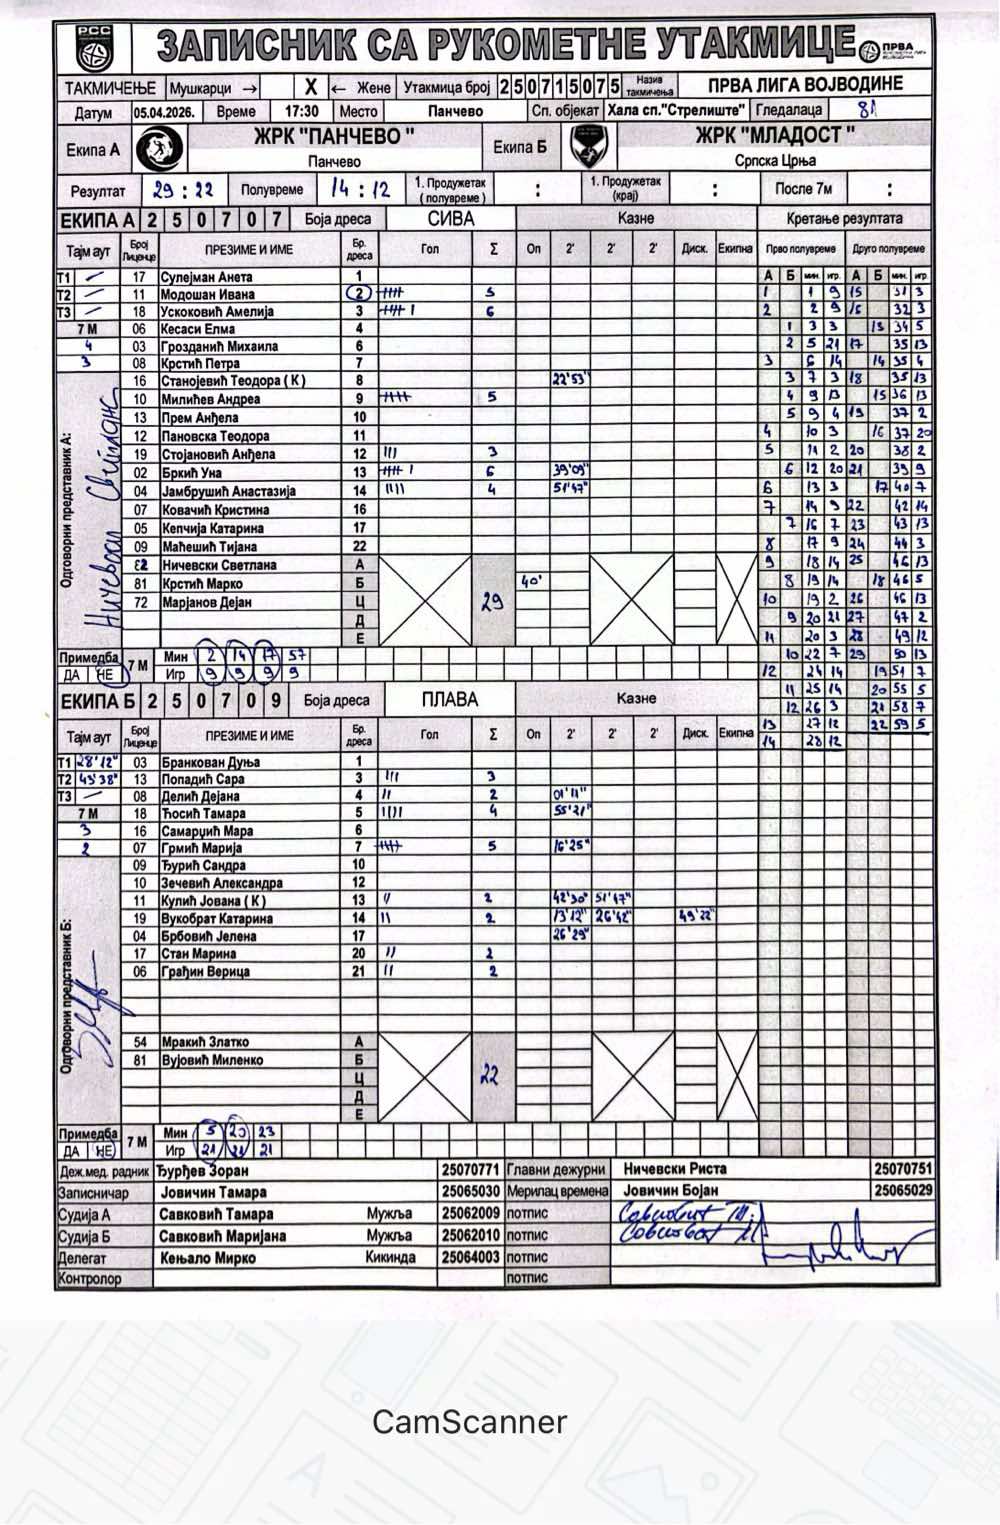 РСС
ЗАПИСНИК СА РУКОМЕТНЕ УТАКМИЦЕ ПРВА
ТАКМИЧЕЊЕ Мушкарци → X ← Жене Утакмица број 250715075 Назив такмичења ПРВА ЛИГА ВОЈВОДИНЕ
Датум 05.04.2026. Време 17:30 Место Панчево Сп. објекат Хала сп."Стрелиште" Гледалаца 81
Екипа А ЖРК "ПАНЧЕВО " Панчево Екипа Б ЖРК "МЛАДОСТ " Српска Црња
Резултат 29 : 22 Полувреме 14 : 12 1. Продужетак ( полувреме ) : 1. Продужетак (крај) : После 7м :
ЕКИПА А 2 5 0 7 0 7 Боја дреса СИВА Казне Кретање резултата
Тајм аут Број Лиценце ПРЕЗИМЕ И ИМЕ Бр. дреса Гол Σ Оп 2' 2' 2' Диск. Екипна Прво полувреме Друго полувреме
Т1 – 17 Сулејман Анета 1 А Б мин. игр. А Б мин. игр.
Т2 – 11 Модошан Ивана 2 5 1 1 9 15 31 3
Т3 – 18 Ускоковић Амелија 3 6 2 2 9 16 32 3
7 М 06 Кесаси Елма 4 1 3 3 13 34 5
4 03 Грозданић Михаила 6 2 5 21 17 35 13
3 08 Крстић Петра 7 3 6 14 14 35 4
16 Станојевић Теодора ( К ) 8 22'53" 3 7 3 18 35 13
10 Милићев Андреа 9 5 4 9 13 15 36 13
13 Прем Анђела 10 5 9 4 19 37 2
12 Пановска Теодора 11 4 10 3 16 37 20
19 Стојановић Анђела 12 3 5 11 2 20 38 2
02 Бркић Уна 13 6 39'09" 6 12 20 21 39 9
04 Јамбрушић Анастазија 14 4 51'47" 6 13 3 17 40 7
07 Ковачић Кристина 16 7 14 9 22 42 14
05 Кепчија Катарина 17 7 16 7 23 43 13
09 Маћешић Тијана 22 8 17 9 24 44 3
Ничевски Светлана А 9 18 14 25 46 13
81 Крстић Марко Б 40' 8 19 14 18 46 5
72 Марјанов Дејан Ц 29 10 19 2 26 46 13
Д 9 20 21 27 47 2
Е 11 20 3 28 49 12
Одговорни представник А:
Примедба ДА НЕ 7 М Мин 2 14 17 57 10 22 7 29 50 13
Игр 9 9 9 9 12 24 14 19 51 7
ЕКИПА Б 2 5 0 7 0 9 Боја дреса ПЛАВА Казне 11 25 14 20 55 5
12 26 3 21 58 7
Тајм аут Број Лиценце ПРЕЗИМЕ И ИМЕ Бр. дреса Гол Σ Оп 2' 2' 2' Диск. Екипна 13 27 12 22 59 5
14 28 12
Т1 28'12" 03 Бранкован Дуња 1
Т2 45'38" 13 Попадић Сара 3 3
Т3 – 08 Делић Дејана 4 2 01'11"
7 М 18 Ћосић Тамара 5 4 55'21"
3 16 Самарџић Мара 6
2 07 Грмић Марија 7 5 16'25"
09 Ђурић Сандра 10
10 Зечевић Александра 12
11 Кулић Јована ( К ) 13 2 42'30" 51'47"
19 Вукобрат Катарина 14 2 13'12" 26'42" 49'22"
04 Брбовић Јелена 17 26'29"
17 Стан Марина 20 2
06 Грађин Верица 21 2
Одговорни представник Б:
54 Мракић Златко А
81 Вујовић Миленко Б
Ц 22
Д
Е
Примедба ДА НЕ 7 М Мин 5 20 23
Игр 21 21 21
Деж.мед. радник Ђурђев Зоран 25070771 Главни дежурни Ничевски Риста 25070751
Записничар Јовичин Тамара 25065030 Мерилац времена Јовичин Бојан 25065029
Судија А Савковић Тамара Мужља 25062009 потпис
Судија Б Савковић Маријана Мужља 25062010 потпис
Делегат Кењало Мирко Кикинда 25064003 потпис
Контролор потпис
CamScanner